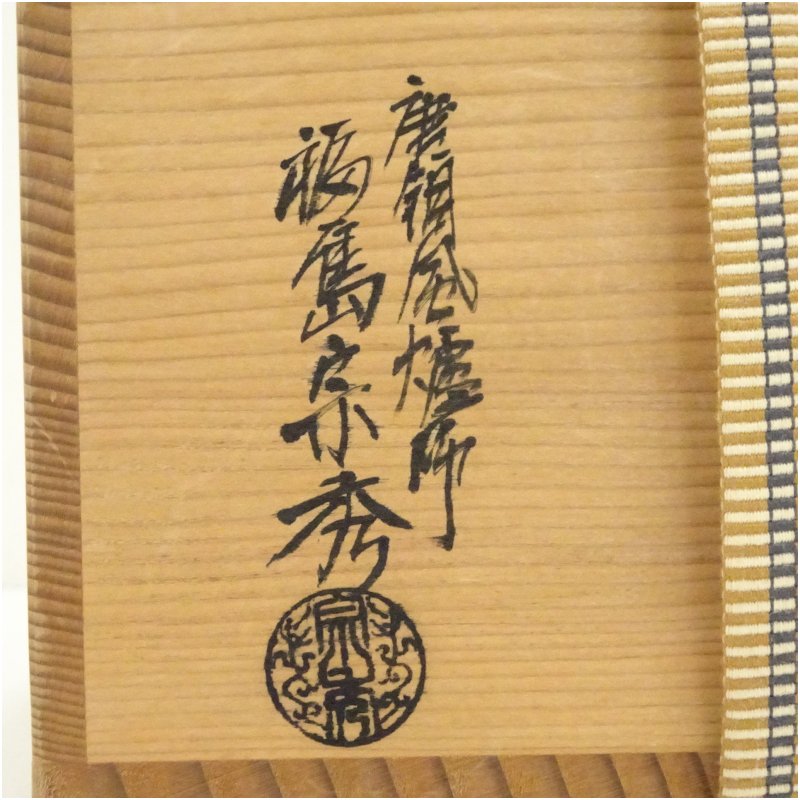 唐銅風炉師
福島宗秀